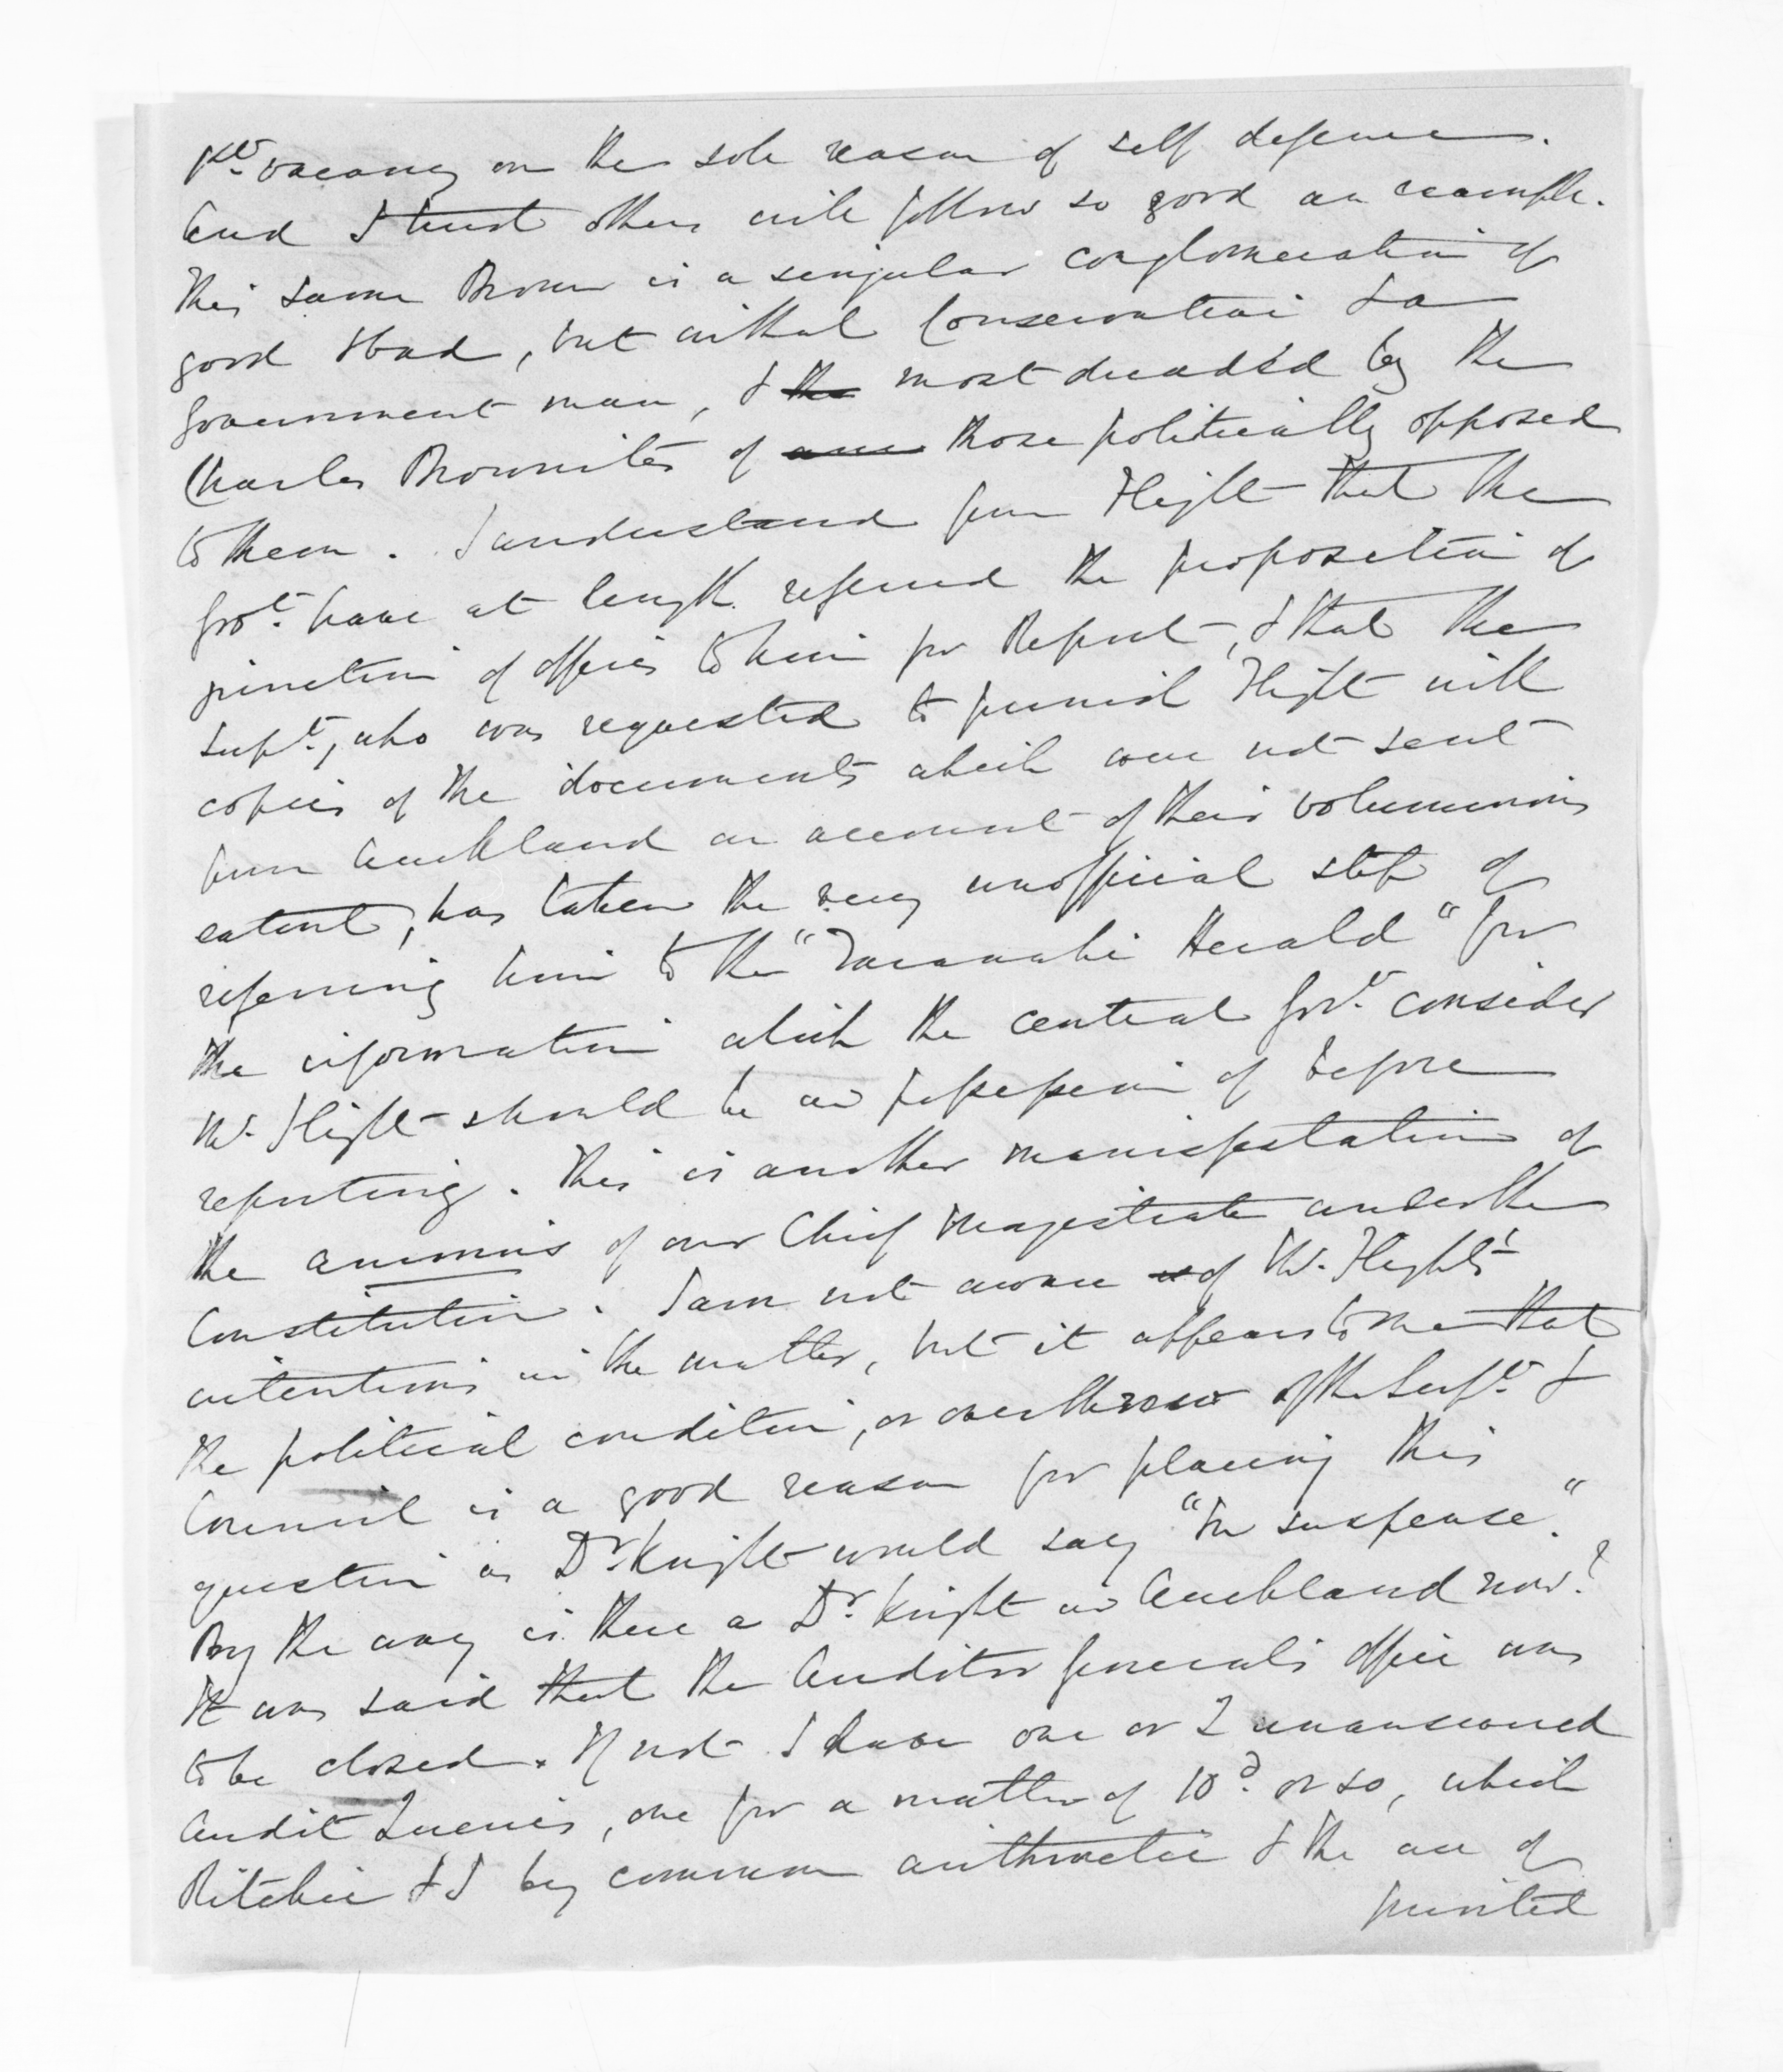 1st vacancy on the sole reason of self defence.
And I trust others will follow so good an example.
This same Brown is a singular conglomeration of
good & bad, but withal Conservative & a
Government man, & the most dreaded by the
Charles Brownites of those politically opposed
to them. I understand from Flight that the
Govt. have at length referred the proposition of
junction of offices to him for Report, & that the
Supt., who was requested to furnish Flight with
copies of the documents which were not sent
from Auckland on account of their voluminous
extent, has taken the very unofficial step of
referring him to the "Taranaki Herald" for
the information which the central Govt. consider
Mr. Flight should be in possession of before
reporting. This is another manifestation of
the animus of our Chief Magistrate under the
Constitution. I am not aware of Mr. Flight's
intentions in the matter, but it appears to me that
the political condition, or overthrow of the Supt. &
Council is a good reason for placing this
question as Dr. Knight would say "In suspense."
By the way is there a Dr. Knight in Auckland now?
It was said that the Auditor General's office was
to be closed. If not I have one or 2 unanswered
Audit Queries, one for a matter of 10d. or so, which
Ritchie & I by common arithmetic & the use of
printed